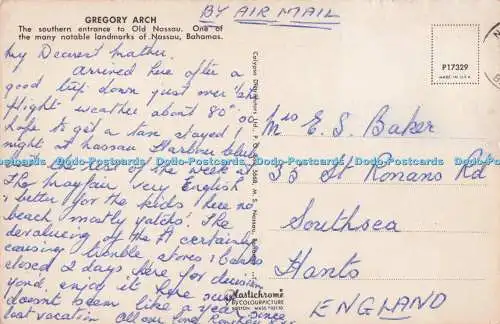 GREGORY ARCH
The southern entrance to Old Nassau. One of
the many notable landmarks of Nassau, Bahamas.
BY AIR MAIL
P17329
MADE IN U.S.A.
My Dearest Mother.
Arrived here after a
good trip down just over
flight weather about 80°
hope to get a tan stayed 1
night at Nassau Harbour Club
the rest of the week at
The Mayfair very English
& better for the kids here no
beach mostly yatchs. The
devalueing of the £1 certainly
causing trouble stores & banks
closed 2 days here for decision
enjoy it here sure
doesn't seem like a year since
last vacation. All our fond
Mrs E. S. Baker
33 St Ronans Rd
Southsea
Hants
ENGLAND
Plastichrome
BY COLOURPICTURE
Dodo-Postcards Dodo-Postcards Dodo-Postcards Dodo-Postcards